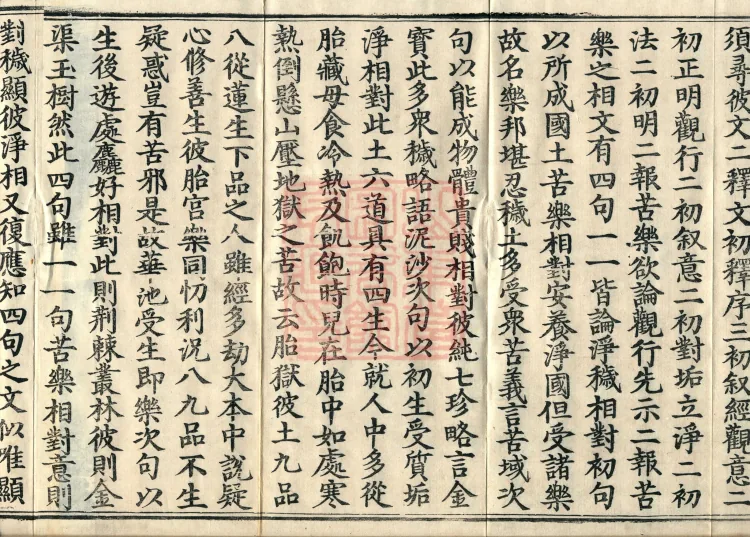 須尋彼文二釋文初釋序三初叙經觀意二
初正明觀行二初叙意二初對垢立淨二初
法二初明二報苦樂欲論觀行先示二報苦
樂之相文有四句一一皆論淨穢相對初句
以所成國土苦樂相對安養淨國但受諸樂
故名樂邦堪忍穢土多受衆苦義言苦域次
句以能成物體貴賤相對彼純七珍略言金
寶此多衆穢略語泥沙次句以初生受質垢
淨相對此土六道具有四生今就人中多從
胎藏母食冷熱及飢飽時兒在胎中如處寒
熱倒懸山壓地獄之苦故云胎獄彼土九品
八從蓮生下品之人雖經多劫大本中說疑
心修善生彼胎宮樂同忉利況八九品不生
疑惑豈有苦邪是故華池受生即樂次句以
生後遊處麤好相對此則荆棘叢林彼則金
渠玉樹然此四句雖一一句苦樂相對意則
對穢顯彼淨相又復應知四句之文似唯顯